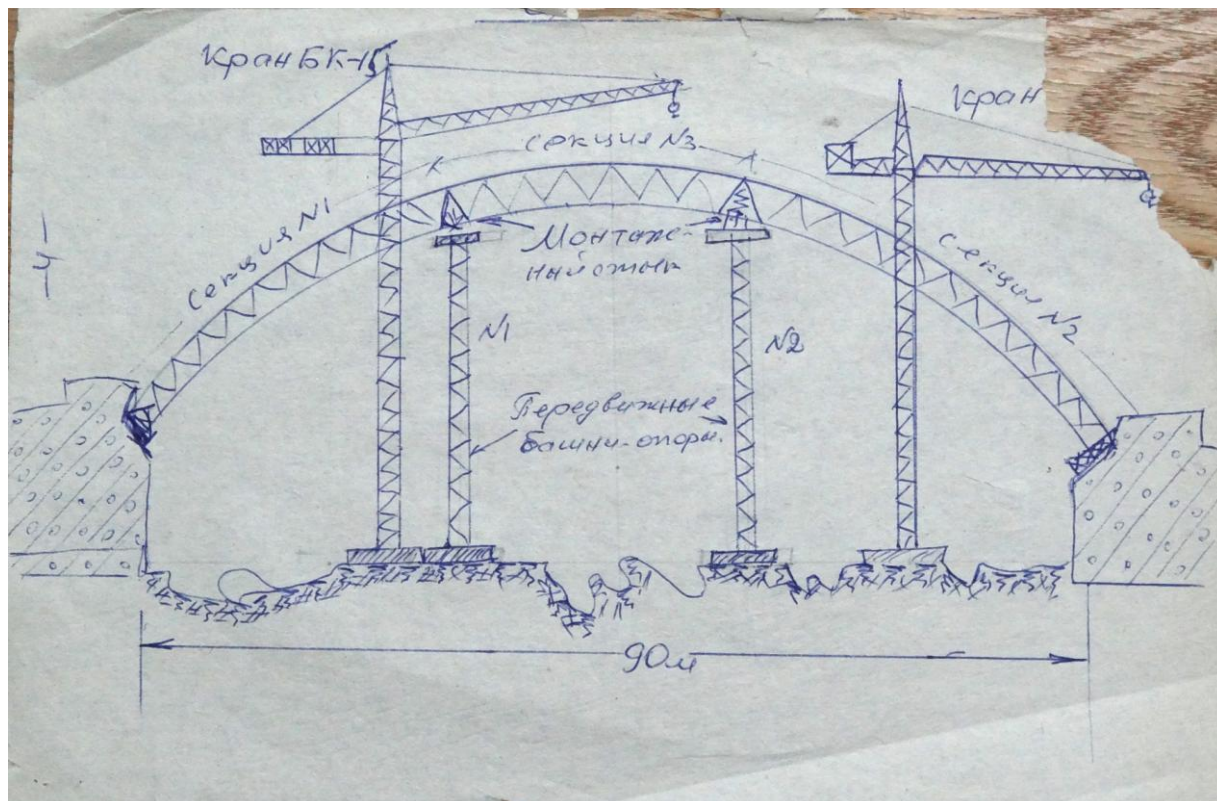 Кран БК-15
Кран
секция N3
секция N1
секция N2
-4-
Монтаж-
ный стык
N1
N2
Передвижные
башни-опоры.
90м